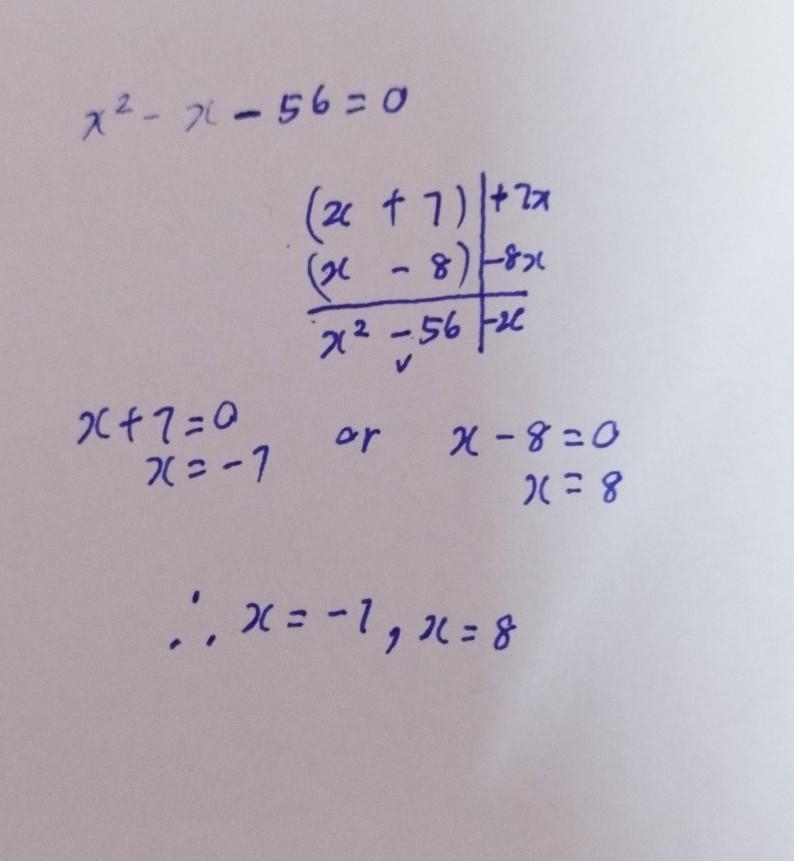 x² - x - 56 = 0
(x + 7) | +7x
(x - 8) | -8x
x² - 56 | -x
✓
x + 7 = 0 or x - 8 = 0
x = -7 x = 8
∴ x = -7, x = 8